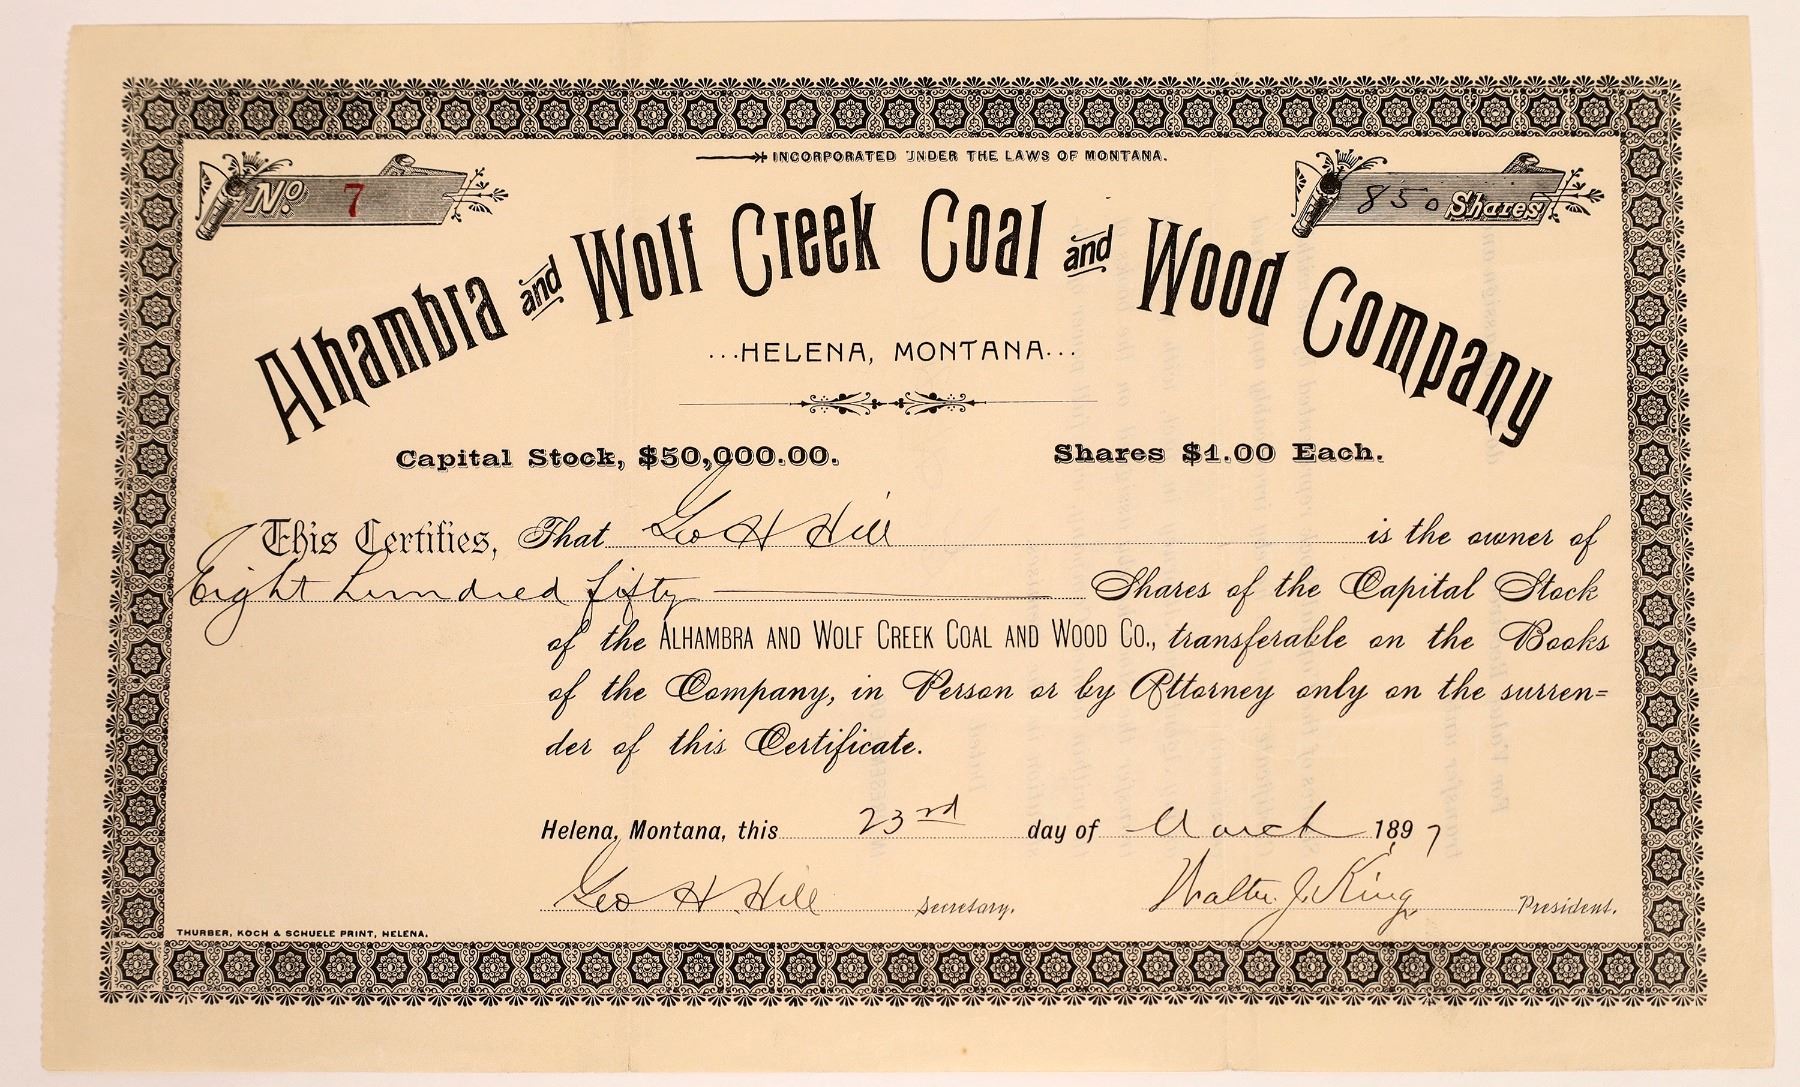 INCORPORATED UNDER THE LAWS OF MONTANA.
No. 7
850 Shares
Alhambra and Wolf Creek Coal and Wood Company
...HELENA, MONTANA...
Capital Stock, $50,000.00. Shares $1.00 Each.
This Certifies, That Geo H Hill is the owner of
Eight hundred fifty Shares of the Capital Stock
of the ALHAMBRA AND WOLF CREEK COAL AND WOOD CO., transferable on the Books
of the Company, in Person or by Attorney only on the surren=
der of this Certificate.
Helena, Montana, this 23rd day of March 1897
Geo H. Hill Secretary. Walter J. King President.
THURBER, KOCH & SCHUELE PRINT, HELENA.